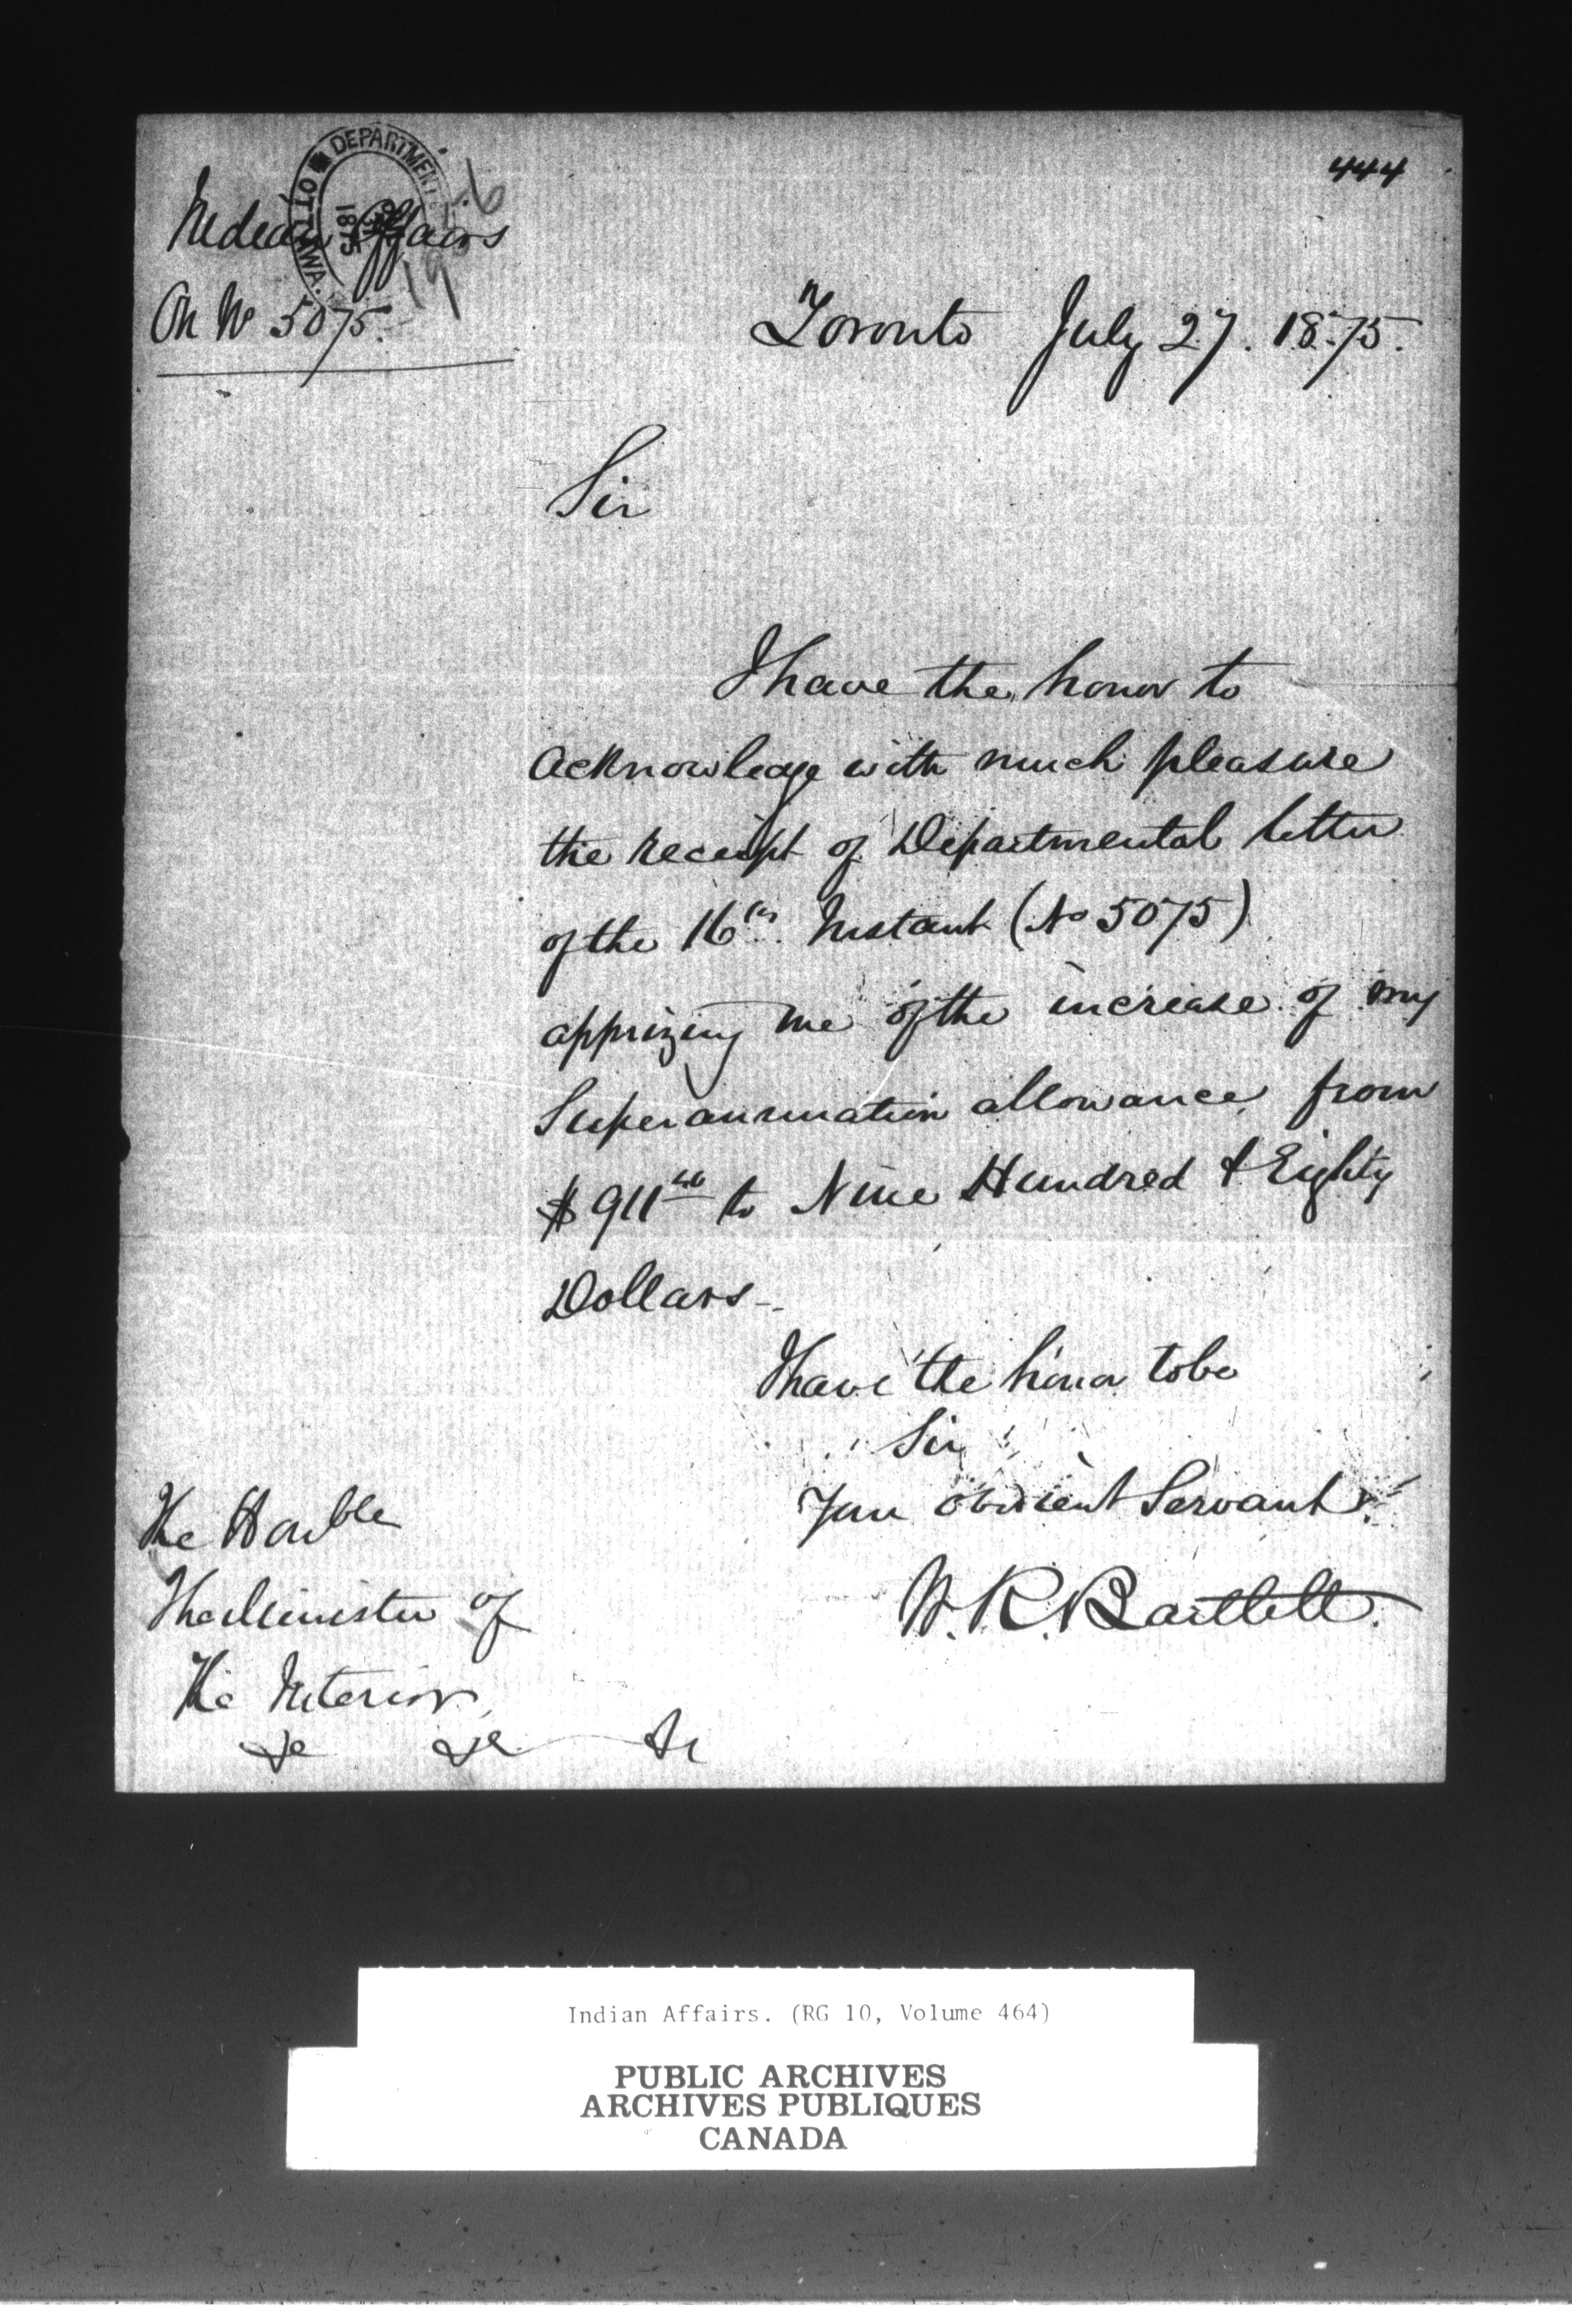 444
DEPARTMENT
OTTAWA.
1875
Indian Affairs
On No 5075.
Toronto July 27. 1875.
Sir
I have the honor to
acknowledge with much pleasure
the receipt of Departmental letter
of the 16th Instant (No 5075)
apprizing me of the increase of my
Superannuation allowance from
$911 to Nine Hundred & Eighty
Dollars_
I have the honor to be
Sir
Your obedient Servant
W. R. Bartlett.
The Honble
The Minister of
The Interior
&c &c &c
Indian Affairs. (RG 10, Volume 464)
PUBLIC ARCHIVES
ARCHIVES PUBLIQUES
CANADA